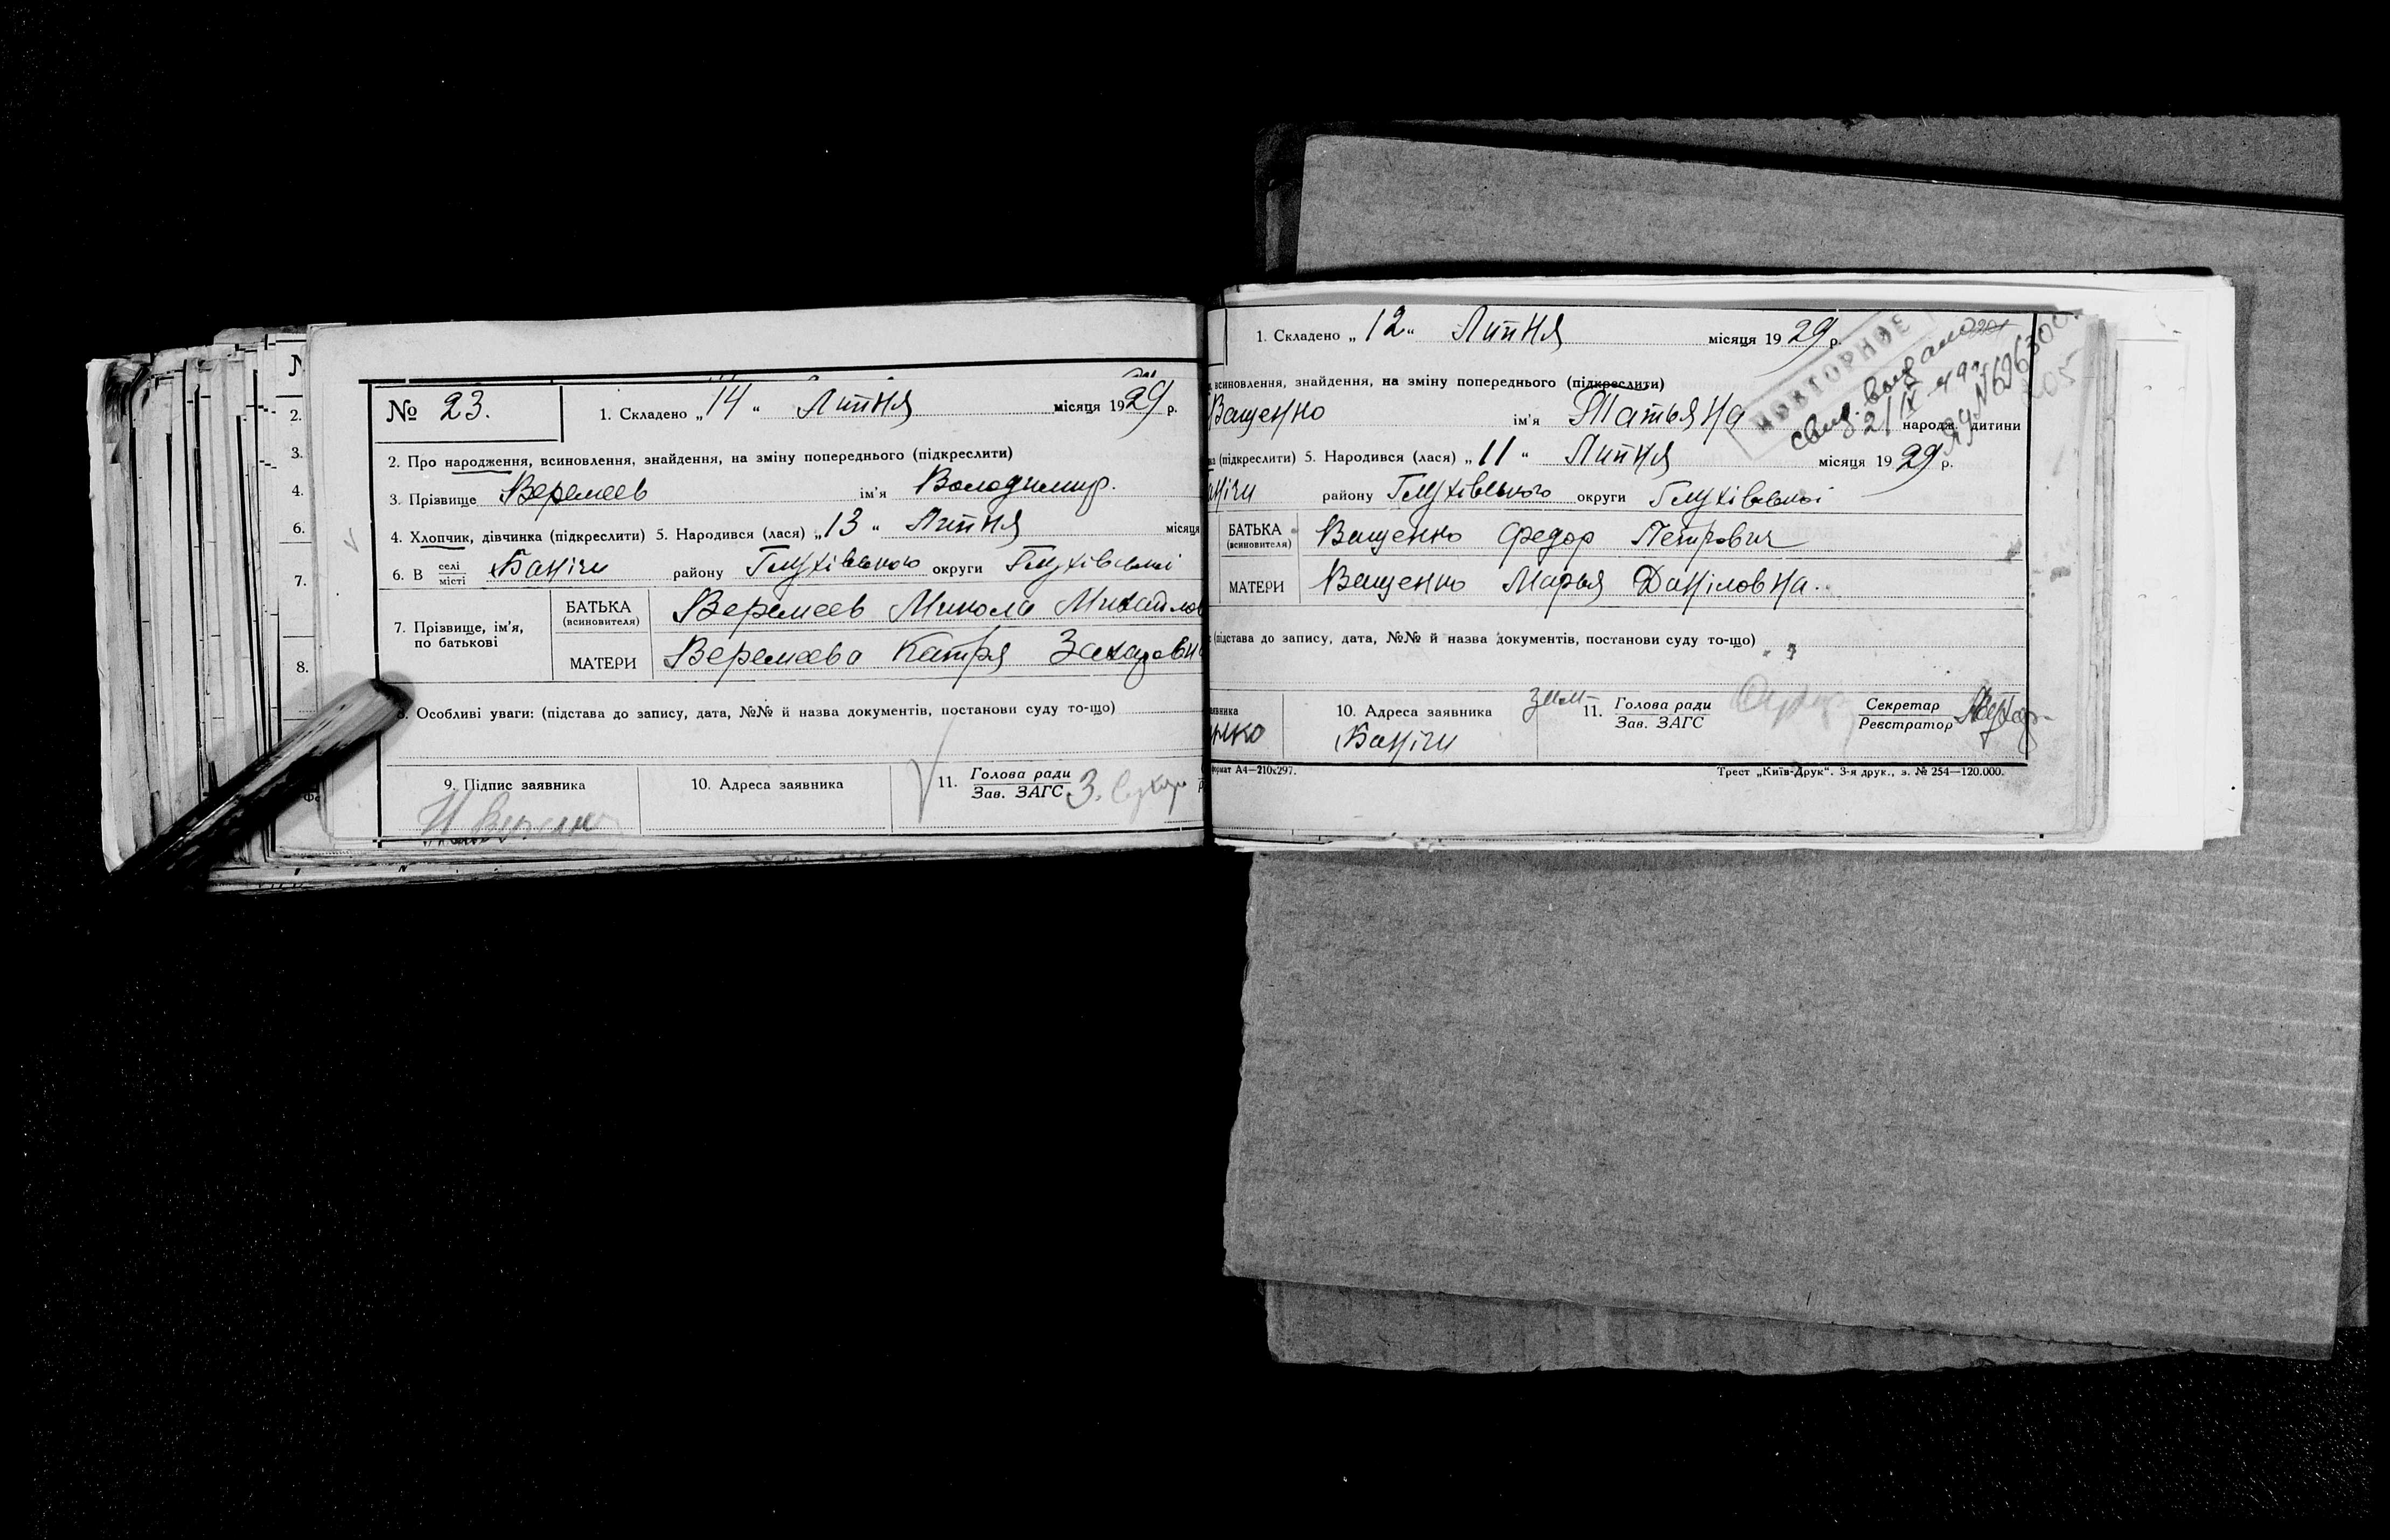 № 23.
1. Складено „14“ Липня місяця 1929 р.
2. Про народження, всиновлення, знайдення, на зміну попереднього (підкреслити)
3. Прізвище Веремеев ім'я Володимир.
4. Хлопчик, дівчинка (підкреслити) 5. Народився (лася) „13“ Липня місяця
6. В селі місті Банічи району Глухівського округи Глухівської
7. Прізвище, ім'я, по батькові
БАТЬКА (всиновителя) Веремеев Микола Михайлов
МАТЕРИ Веремеева Катря Захаровн
8. Особливі уваги: (підстава до запису, дата, №№ й назва документів, постанови суду то-що)
9. Підпис заявника
10. Адреса заявника
11. Голова ради
Зав. ЗАГС З.
2.
3.
4.
6.
7.
8.
1. Складено „12“ Липня місяця 1929 р.
всиновлення, знайдення, на зміну попереднього (підкреслити)
Ващенко ім'я Татьяна народж. дитини
(підкреслити) 5. Народився (лася) „11“ Липня місяця 1929 р.
аничи району Глухівського округи Глухівської
БАТЬКА (всиновителя) Ващенко Федор Петрович
МАТЕРИ Ващенко Марья Даніловна.
(підстава до запису, дата, №№ й назва документів, постанови суду то-що)
явника
нко
10. Адреса заявника
Банічи
11. Голова ради
Зав. ЗАГС
Секретар
Реєстратор
формат А4—210х297.
Трест „Київ-Друк“. 3-я друк., з. № 254—120.000.
ПОВТОРНОЕ
свид. выдано
21/IX